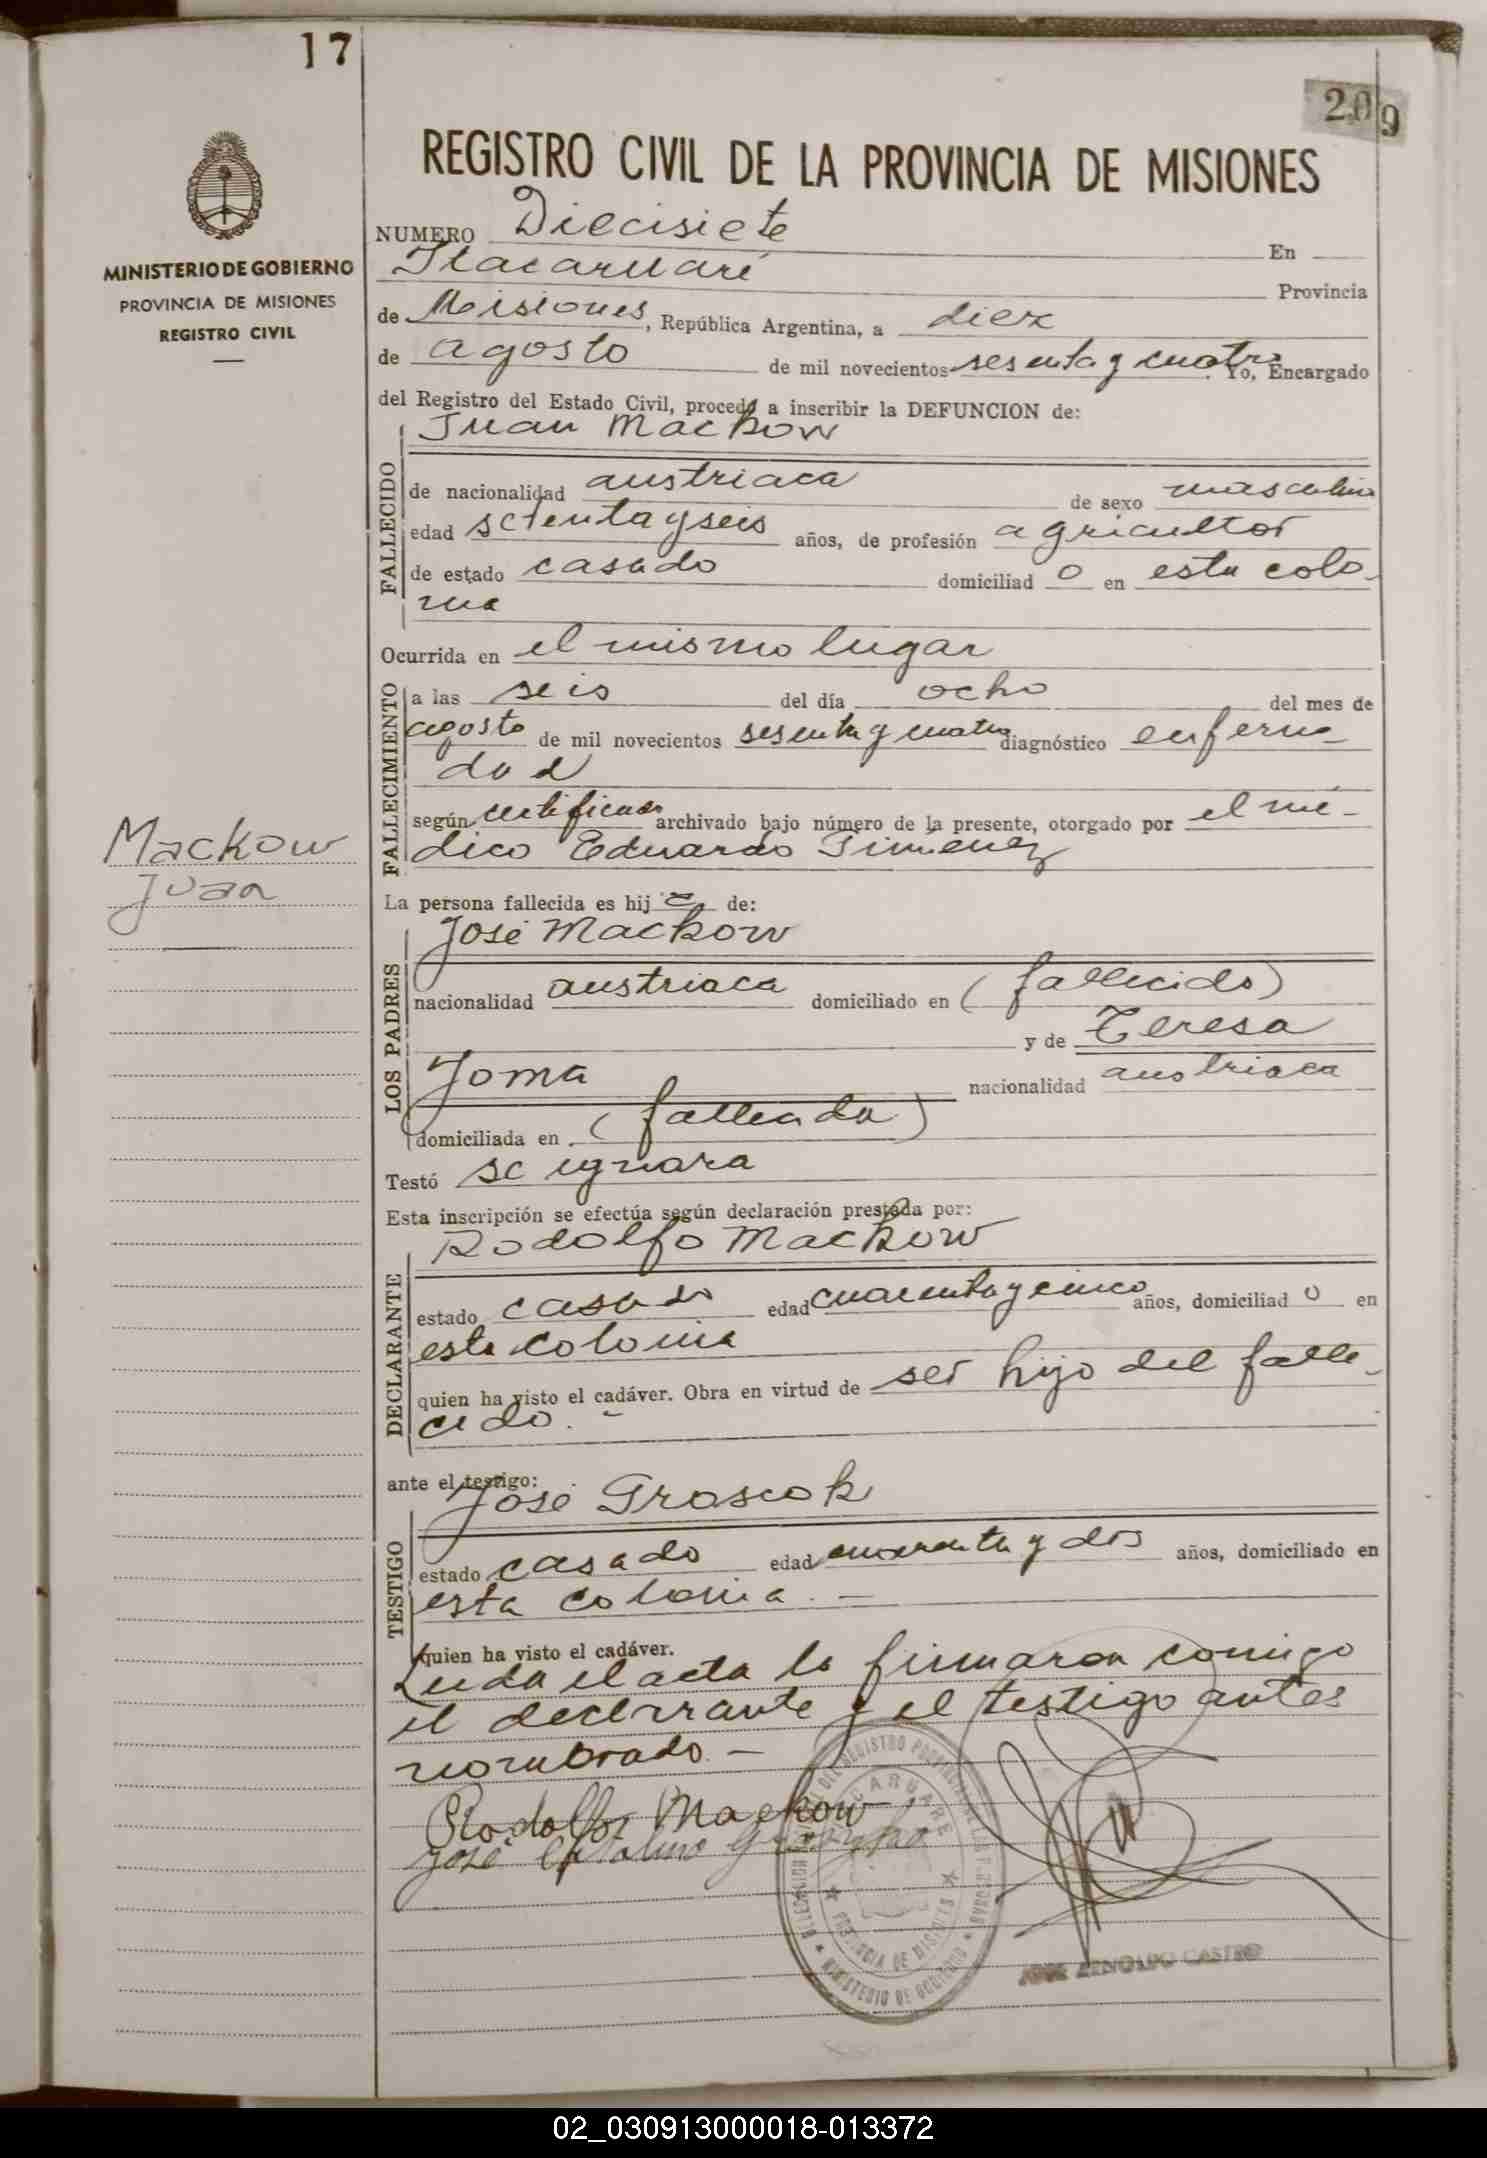 17
209
MINISTERIO DE GOBIERNO
PROVINCIA DE MISIONES
REGISTRO CIVIL
Mackow
Juan
REGISTRO CIVIL DE LA PROVINCIA DE MISIONES
NUMERO Diecisiete En
Itacaruaré Provincia
de Misiones, República Argentina, a diez
de agosto de mil novecientos sesenta y cuatro. Yo, Encargado
del Registro del Estado Civil, procedo a inscribir la DEFUNCION de:
Juan Mackow
FALLECIDO
de nacionalidad austriaca de sexo masculino
edad setenta y seis años, de profesión agricultor
de estado casado domiciliado en esta colo-
nia
Ocurrida en el mismo lugar
FALLECIMIENTO
a las seis del día ocho del mes de
agosto de mil novecientos sesenta y cuatro diagnóstico enferme-
dad
según certificado archivado bajo número de la presente, otorgado por el mé-
dico Eduardo Jimenez
La persona fallecida es hijo de:
LOS PADRES
José Mackow
nacionalidad austriaca domiciliado en (fallecido)
y de Teresa
Joma nacionalidad austriaca
domiciliada en (fallecida)
Testó se ignora
Esta inscripción se efectúa según declaración prestada por:
DECLARANTE
Rodolfo Mackow
estado casado edad cuarenta y cinco años, domiciliado en
esta colonia
quien ha visto el cadáver. Obra en virtud de ser hijo del falle-
cido.-
ante el testigo:
TESTIGO
José Groscok
estado casado edad cuarenta y dos años, domiciliado en
esta colonia.-
quien ha visto el cadáver.
Leida el acta la firmaron comigo
el declarante y el testigo antes
nombrado.-
Rodolfo Mackow
José
ITACARUARE
PROVINCIA DE MISIONES
MINISTERIO DE GOBIERNO
JOSE ARNOLDO CASTRO
02_030913000018-013372